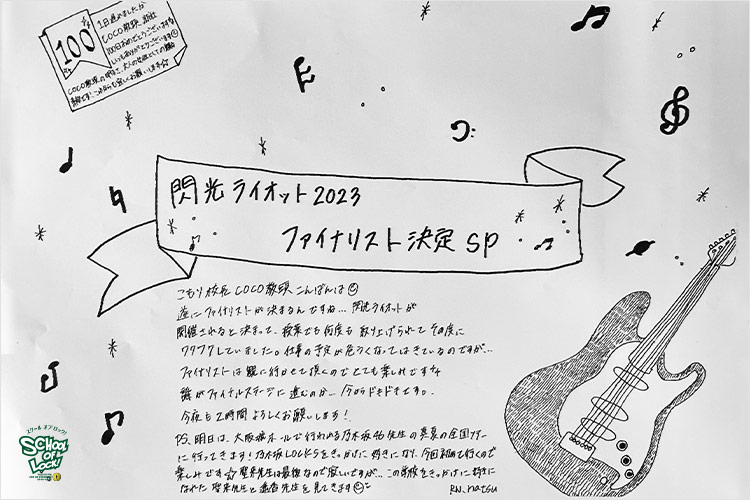 100
1日過ぎましたが
COCO教頭、就任
100日おめでとうございます
いつもありがとうございます
閃光ライオット2023
ファイナリスト決定SP
こもり校長 COCO教頭 こんばんは
遂にファイナリストが決まるんですね… 閃光ライオットが
開催されると決まって、授業でも何度も取り上げられてその度に
ワクワクしていました。仕事の予定が危うくなってはきているのですが…
ファイナリストは観に行かせて頂くのでとても楽しみです
誰がファイナルステージに進むのか…今からドキドキです。
今夜も2時間よろしくお願いします!
P.S. 明日は、大阪城ホールで行われる乃木坂46先生の真夏の全国ツアー
に行ってきます!乃木坂LOCKSをきっかけに好きになり、今回初めて行くので
楽しみです☆ 聖来先生は最後なので寂しいですが…この学校をきっかけに好きに
なれた聖来先生と遥香先生を見てきます
RN. natsu
スクール オブ ロック!
SCHOOL
OF
LOCK!